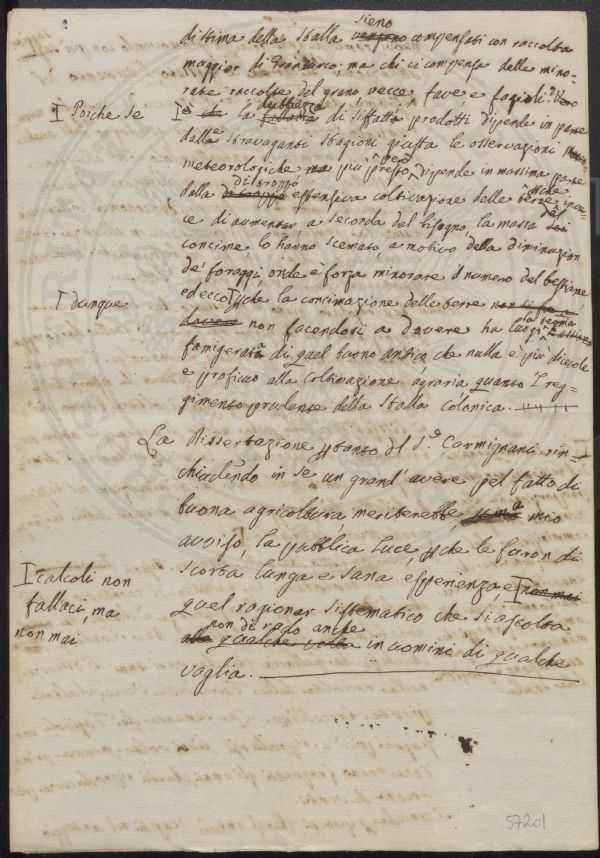 sieno
distima della stalla vengono compensati con raccolta
maggior di Frantuoco; ma chi ci compensa delle mino-
rate raccolte del grano, vecce, fave, e fagioli?
I Poiche se
dubbiezza
I che la fallacia di siffatti prodotti dipende in parte
dalle stravaganti stagioni giusta le osservazioni
meteorologiche ma piu spesso dipende in massima parte
dalla di troppo estensiva coltivazione delle terre, che inve-
ce di aumentar, a seconda del bisogno, la massa del
concime lo hanno scemato, a motivo della diminuzion
de' foraggi, onde è forza minorare il numero del bestiame
I dunque
ed ecco I che la concimazione delle terre
non facendosi a dovere ha luogo
famigerato di quel buono antico, che nulla è più dicevole
e proficuo alla coltivazione agraria quanto 'l reg-
gimento prudente della stalla colonica.
La Dissertazione pertanto del Sr. Carmignani rin-
chiudendo in se un grand' avere pel fatto di
buona agricoltura, meriterebbe, a mio
avviso, la pubblica luce, perche le furon di
scorta lunga e sana esperienza, e I non mai
I calcoli non
fallaci, ma
non mai
quel razionar sistematico che si ascolta
non di rado anche
alle qualche volta in uomini di qualche
vaglia.
57201